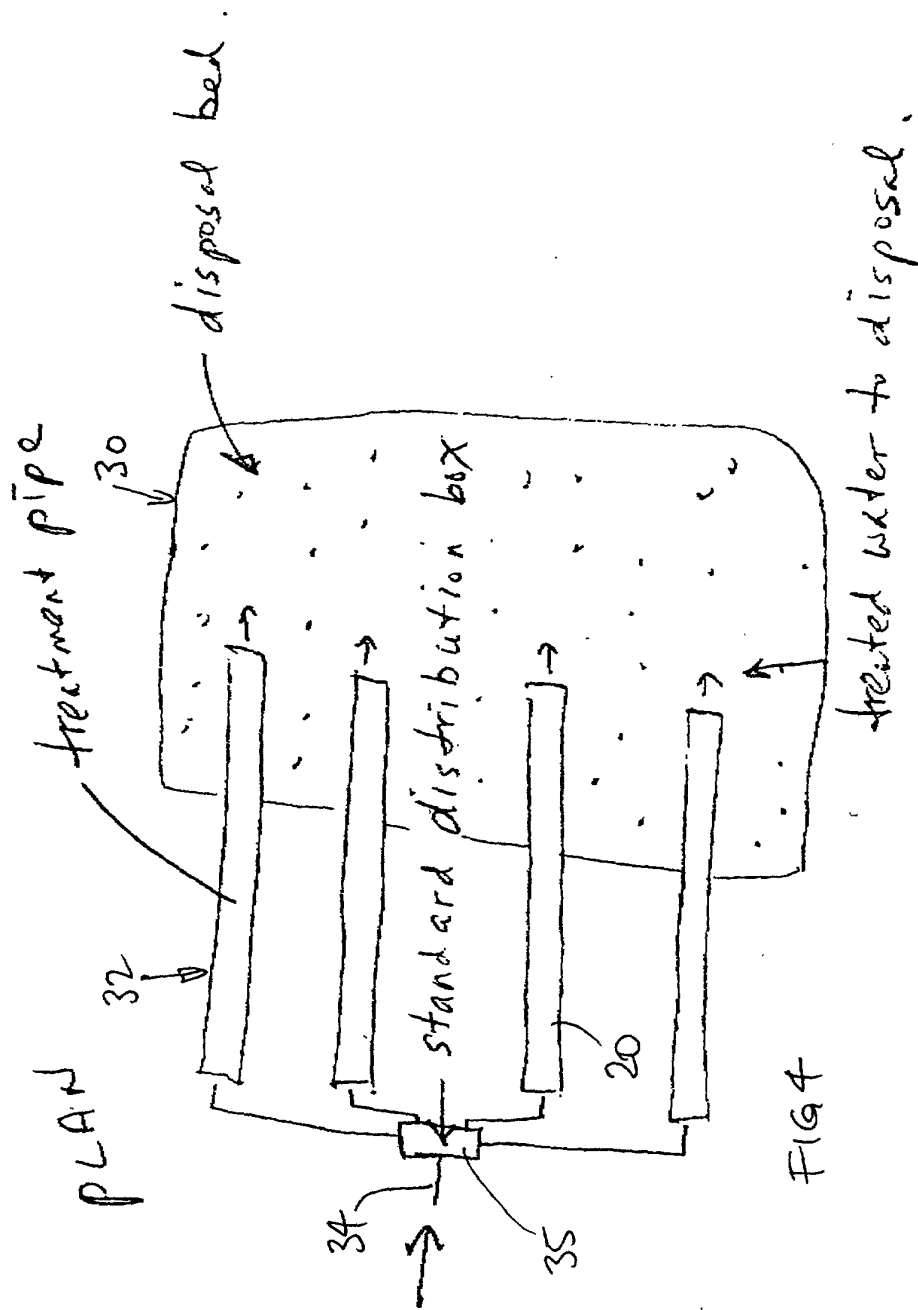 PLAIN
treatment pipe
32
30
disposal bed.
34
standard distribution box
35
20
treated water to disposal.
FIG 4